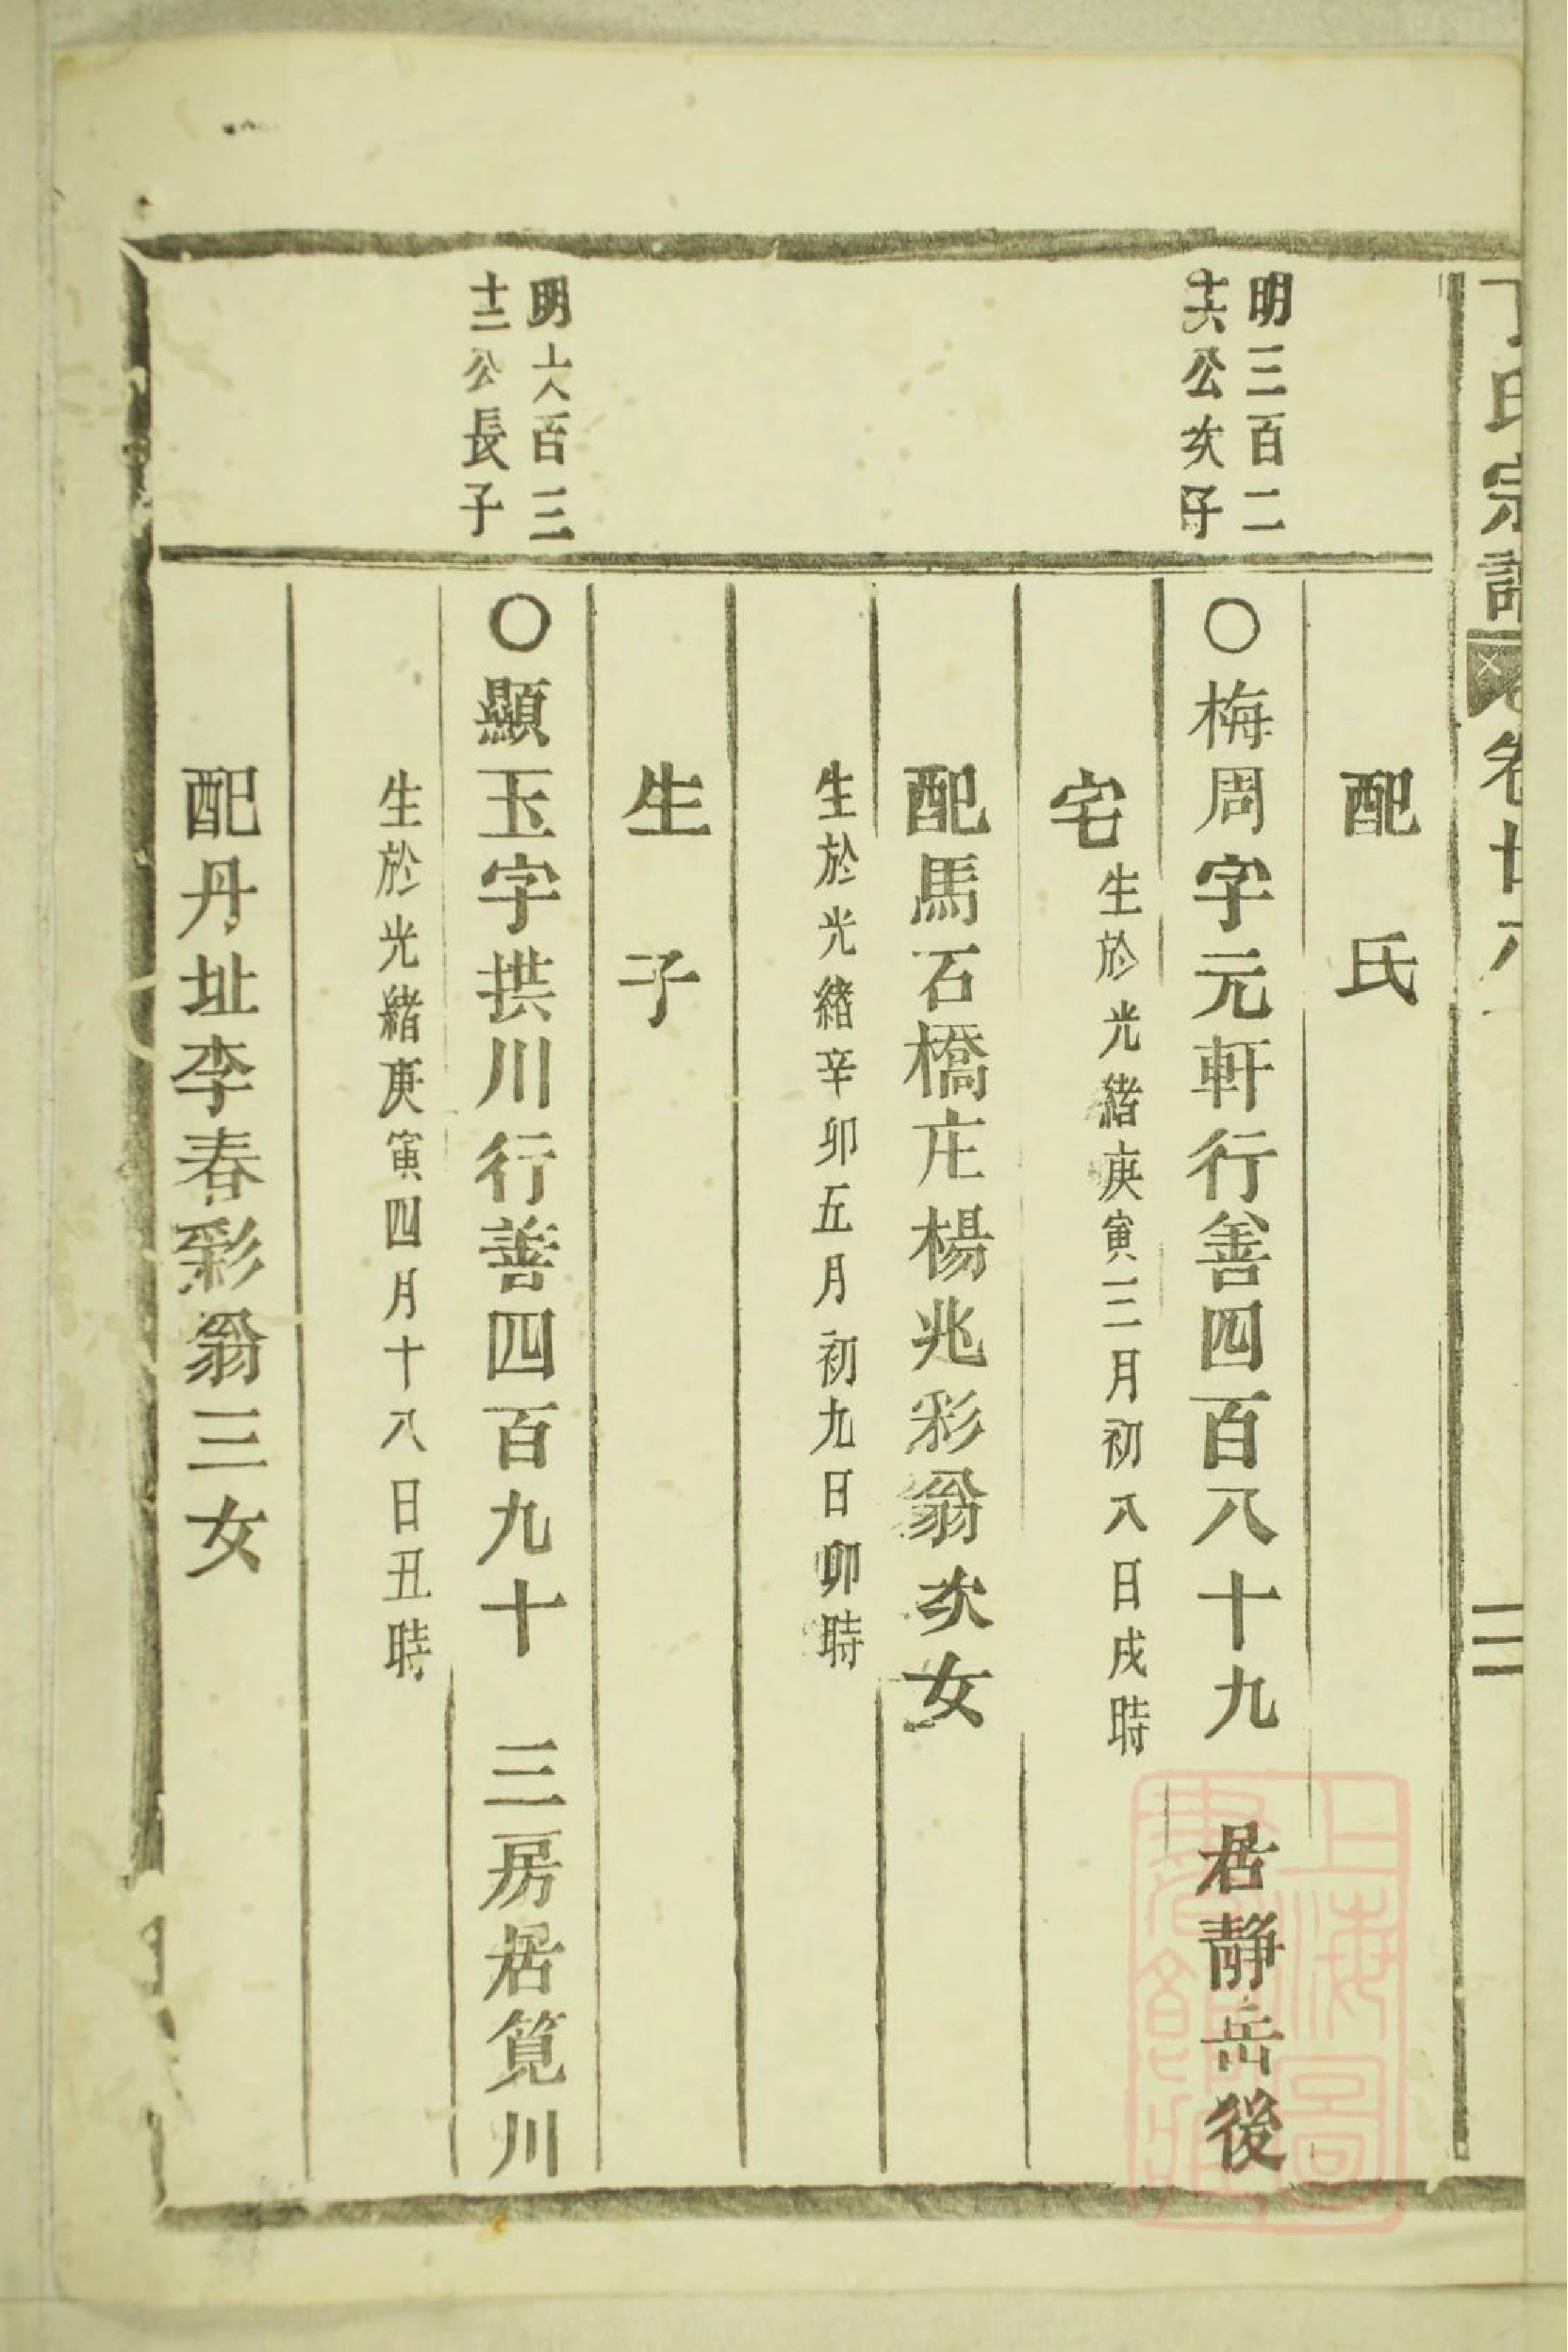 丁氏宗譜 卷廿六 二
配 氏
明三百二
十六公次子
○梅周字元軒行善四百八十九 居靜岳後
宅
生於光緒庚寅三月初八日戌時
配馬石橋庄楊兆彩翁次女
生於光緒辛卯五月初九日卯時
生 子
明六百三
十二公長子
○顯玉字拱川行善四百九十 三房居筧川
生於光緒庚寅四月十八日丑時
配丹址李春彩翁三女
上海圖
書館藏